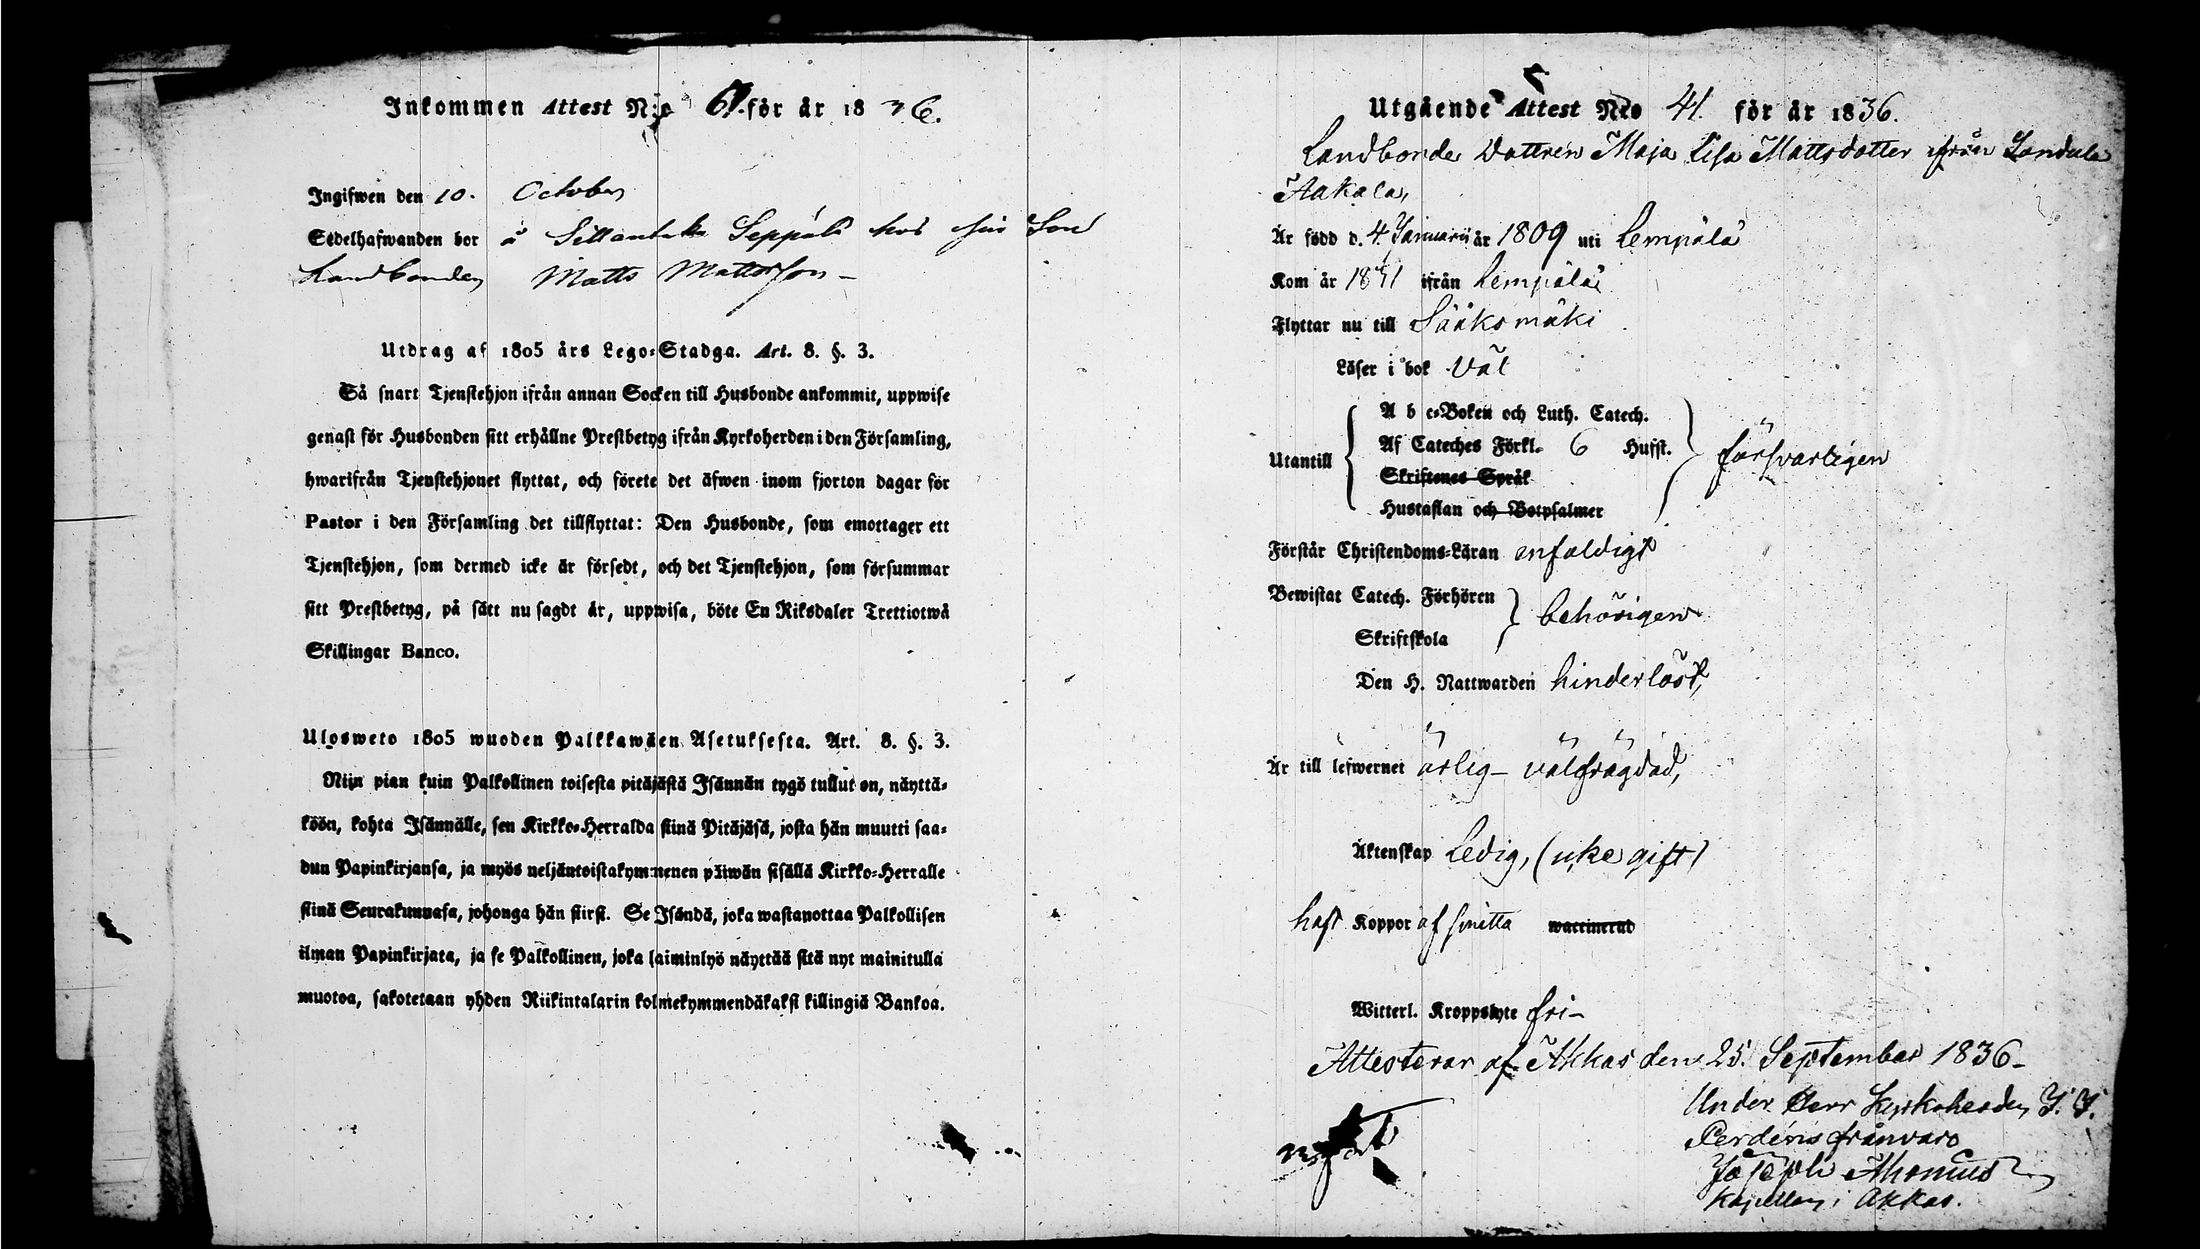 Inkommen Attest N:o 61. för år 1836.
Ingifwen den 10. October
Sedelhafwanden bor å Sillantaka Seppälä hos sin Son
Landbonden Matts Mattsson
Utdrag af 1805 års Lego-Stadga. Art. 8. §. 3.
Så snart Tjenstehjon ifrån annan Socken till Husbonde ankommit, uppwise
genast för Husbonden sitt erhållne Prestbetyg ifrån Kyrkoherden i den Församling,
hwarifrån Tjenstehjonet flyttat, och förete det äfwen inom fjorton dagar för
Pastor i den Församling det tillflyttat: Den Husbonde, som emottager ett
Tjenstehjon, som dermed icke är försedt, och det Tjenstehjon, som försummar
sitt Prestbetyg, på sätt nu sagdt är, uppwisa, böte En Riksdaler Trettiotwå
Skillingar Banco.
Ulosweto 1805 wuoden Palkkawäen Asetuksesta. Art. 8. §. 3.
Nijn pian kuin Palkollinen toisesta pitäjästä Isännän tygö tullut on, näyttä-
köön, kohta Isännälle, sen Kirkko-Herralda siinä Pitäjäsä, josta hän muutti saa-
dun Papinkirjansa, ja myös neljäntoistakymmenen päiwän sisällä Kirkko-Herralle
siinä Seurakunnasa, johonga hän siirsi. Se Isändä, joka wastanottaa Palkollisen
ilman Papinkirjata, ja se Palkollinen, joka laiminlyö näyttää sitä nyt mainitulla
muotoa, sakotetaan yhden Riikintalarin kolmekymmendäkaksi killingiä Bankoa.
Utgående Attest Nro 41. för år 1836.
Landbonde Dottren Maja Lisa Mattsdotter ifrån
Aakala,
Är född d. 4. Januarii år 1809 uti Lempälä
Kom år 1831 ifrån Lempälä
Flyttar nu till Sääksmäki
Läser i bok väl
Utantill
A b c-Boken och Luth. Catech.
Af Cateches Förkl. 6 Hufst.
Skriftenes Språk
Hustaflan och Botpsalmer
försvarligen
Förstår Christendoms-Läran enfaldigt
Bewistat Catech. Förhören
Skriftskola
behörigen
Den H. Nattwarden hinderlöst,
Är till lefwernet ärlig – välfrägdad,
Äktenskap Ledig, (icke gift)
haft Koppor af smitta waccinerad
Witterl. Kroppslyte fri –
Attesterar af Akkas den 25. September 1836 –
Under Herr Kyrkoherden J. J.
Perdéns frånvaro
Joseph
Kapellan i Akkas.